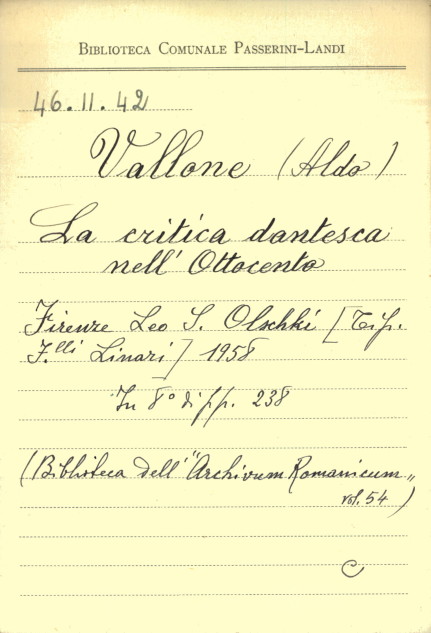 BIBLIOTECA COMUNALE PASSERINI-LANDI
46.11.42
Vallone (Aldo)
La critica dantesca
nell' Ottocento
Firenze Leo S. Olschki [Tip.
F.lli Linari] 1958
In 8° di pp. 238
(Biblioteca dell' "Archivum Romanicum„
vol. 54)
C